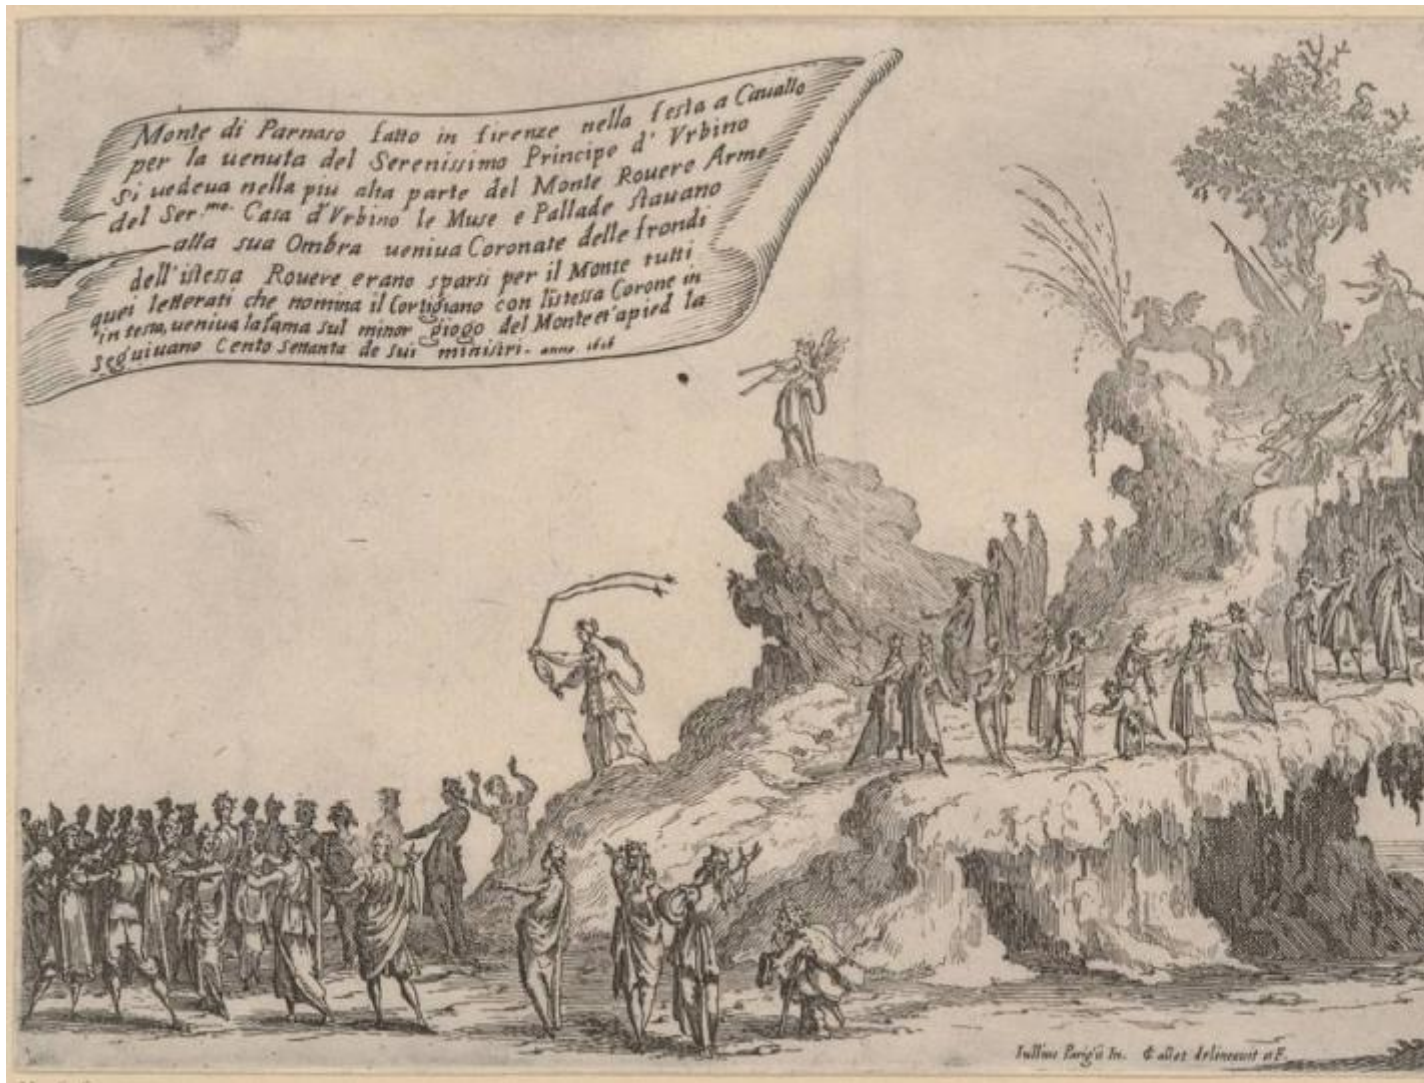 Monte di Parnaso fatto in firenze nella festa a Cauallo
per la uenuta del Serenissimo Principe d'Vrbino
Si uedeua nella piu alta parte del Monte Rouere Arme
del Ser.me Casa d'Vrbino le Muse e Pallade stauano
alla sua Ombra ueniua Coronate delle frondi
dell'istessa Rouere erano sparsi per il Monte tutti
quei letterati che nomina il Cortigiano con l'istessa Corone in
in testa, ueniua la fama sul minor giogo del Monte et a pied la
seguiuano Cento Settanta de sui ministri - anno 1616
Iullius Parigii In. Callot delineauit et F.